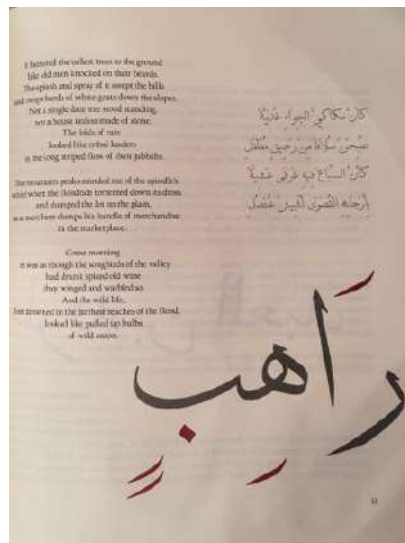 It battered the tallest trees to the ground
like old men knocked on their beards.
The splash and spray of it swept the hills
and swept herds of white goats down the slopes.
Not a single date tree stood standing,
not a house unless made of stone.
The folds of rain
looked like tribal leaders
in the long striped flow of their jubbahs.
The mountain peaks reminded me of the spindle's
when the floodtide down its dross
and dumped the lot on the plain,
as a merchant dumps his bundle of merchandise
in the marketplace.
Come morning
it was as though the songbirds of the valley
had drunk spiced old wine
they winged and warbled so.
And the wild life,
drowned in the furthest reaches of the flood,
looked like pulled up bulbs
of wild onion.
كَأَنَّ مَكَاكِيَّ الجِوَاءِ غُدَيَّةً
صُبِحْنَ سُلَافًا مِنْ رَحِيقٍ مُفَلْفَلِ
كَأَنَّ السِّبَاعَ فِيهِ غَرْقَى عَشِيَّةً
بِأَرْجَائِهِ القُصْوَى أَنَابِيشُ عُنْصُلِ
رَاهِبٍ